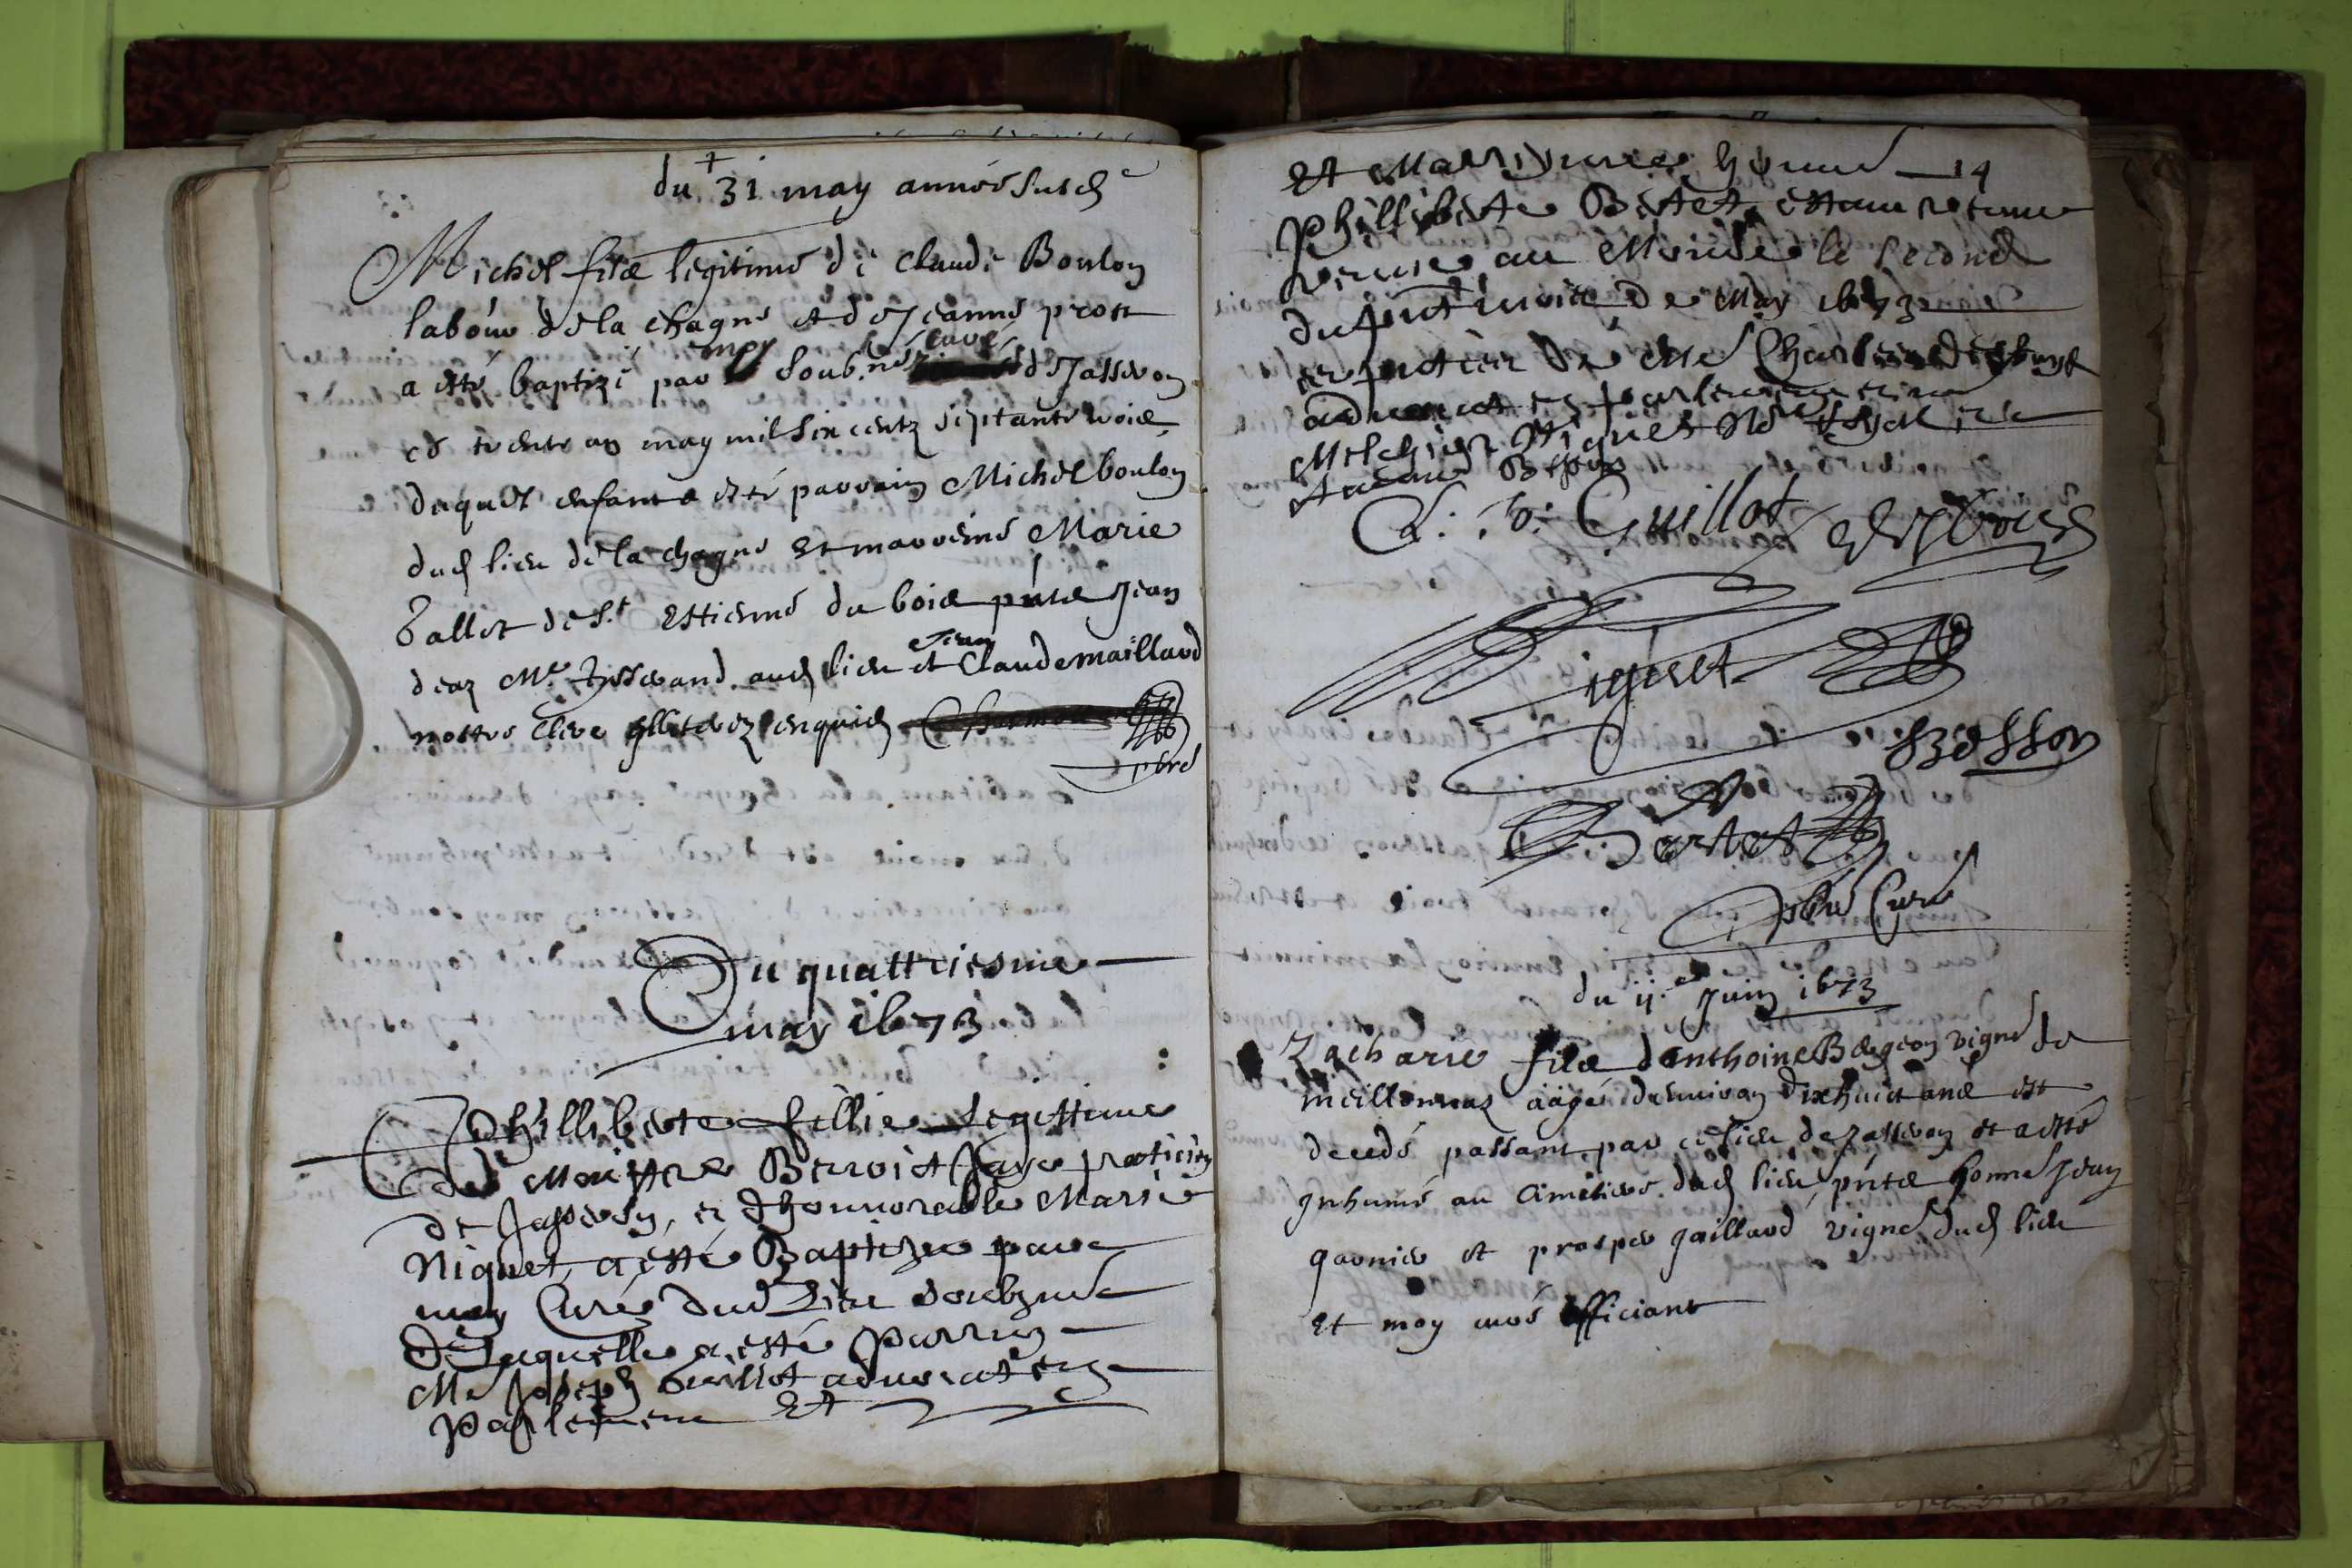 du 31 may année susd
Michel filz legitime de Claude Boulon
labour de la chagne et de Jeanne prost
a esté baptizé par moy soub.né curé de Jasseron
ce trente un may mil six centz septante trois
duquel enfant a esté parrain Michel boulon
dud lieu de la chagne et marreine Marie
ballot de St Estienne du bois pntz Jean
Mre aud lieu et Jean Claude maillard
nostre clerc illiterez enquis
pbre
Du quattriesme
may 1673
Phillibete fillie Legittime
de Maittre Benoict praticien
de Jasseron, et dhonnorable Marie
Niquet a esté Baptizee par
moy Curé dud Lieu soubzne
De laquelle a esté parrin
Me Joseph Guillot advocat en
parlement Et
et Marrinne honne 14
phillibete Bertet estant
venue au Monde le second
du mois de May 1673
de Me Charles
advocat en parlement
Melchior Niquet
C. B. Guillot
Niquet
Besson
Bertet
pbre Curé
du 11e Juin 1673
Zacharie filz danthoine vigne de
meillonnaz aagé denviron dixhuict ans est
decedé passant par ce lieu de Jasseron et a esté
Inhumé au Cimetiere dud lieu pntz honne Jean
garnier et prosper gaillard vigne dud lieu
Et moy curé officiant